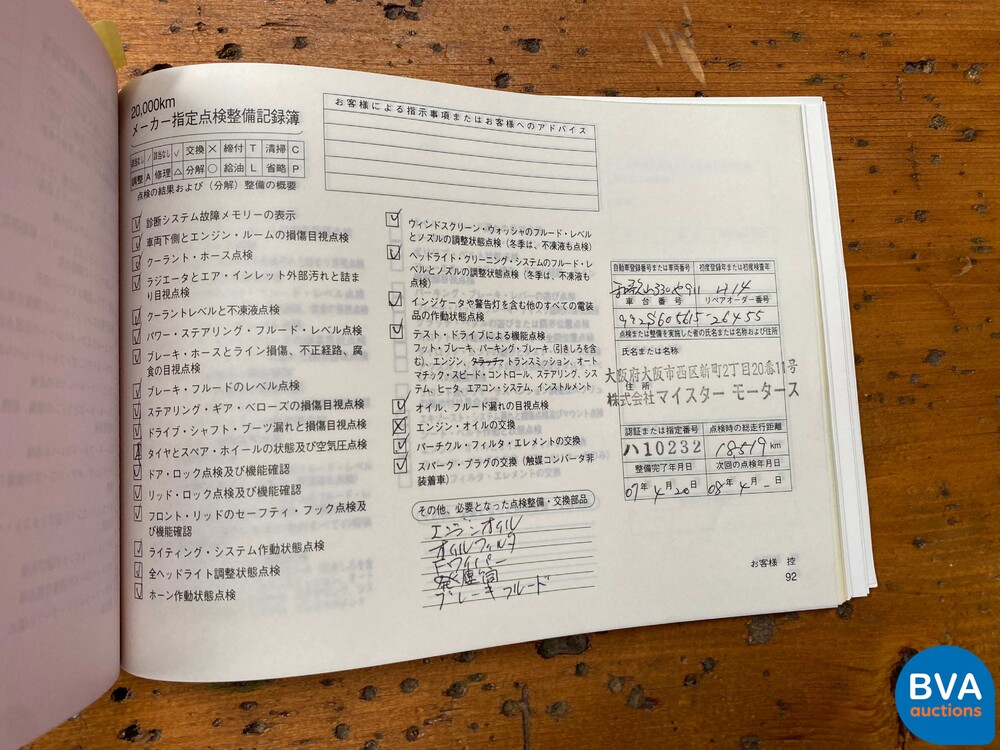 20,000km
メーカー指定点検整備記録簿
該当なし / 良 ✓ 交換 × 締付 T 清掃 C
調整 A 修理 △ 分解 ○ 給油 L 省略 P
点検の結果および(分解)整備の概要
診断システム故障メモリーの表示
車両下側とエンジン・ルームの損傷目視点検
クーラント・ホース点検
ラジエータとエア・インレット外部汚れと詰ま
り目視点検
クーラントレベルと不凍液点検
パワー・ステアリング・フルード・レベル点検
ブレーキ・ホースとライン損傷、不正経路、腐
食の目視点検
ブレーキ・フルードのレベル点検
ステアリング・ギア・ベローズの損傷目視点検
ドライブ・シャフト・ブーツ漏れと損傷目視点検
タイヤとスペア・ホイールの状態及び空気圧点検
ドア・ロック点検及び機能確認
リッド・ロック点検及び機能確認
フロント・リッドのセーフティ・フック点検及
び機能確認
ライティング・システム作動状態点検
全ヘッドライト調整状態点検
ホーン作動状態点検
お客様による指示事項またはお客様へのアドバイス
ウィンドスクリーン・ウォッシャのフルード・レベル
とノズルの調整状態点検(冬季は、不凍液も点検)
ヘッドライト・クリーニング・システムのフルード・レ
ベルとノズルの調整状態点検(冬季は、不凍液も
点検)
インジケータや警告灯を含む他のすべての電装
品の作動状態点検
テスト・ドライブによる機能点検
フット・ブレーキ、パーキング・ブレーキ(引きしろを含
む)、エンジン、クラッチ、トランスミッション、オート
マチック・スピード・コントロール、ステアリング、シス
テム、ヒータ、エアコン・システム、インストルメント
オイル、フルード漏れの目視点検
エンジン・オイルの交換
パーチクル・フィルタ・エレメントの交換
スパーク・プラグの交換(触媒コンバータ非
装着車)
その他、必要となった点検整備・交換部品
エンジンオイル
オイルフィルタ
Fワイパー
発煙筒
ブレーキフルード
自動車登録番号または車両番号 初度登録年または初度検査年
330 911 H14
車台番号 リペアオーダー番号
99ZS605615 26455
点検または整備を実施した者の氏名または名称および住所
氏名または名称
大阪府大阪市西区新町2丁目20番11号
住所
株式会社マイスター モータース
認証または指定番号 点検時の総走行距離
ハ10232 18519 km
整備完了年月日 次回の点検年月日
07年 4月 20日 08年 4月 日
お客様 控
92
BVA
auctions